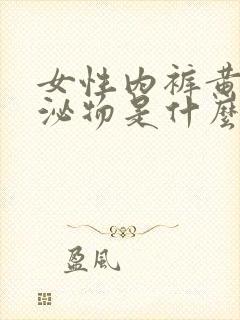 女性内裤黄
泌物是什麼
盈風